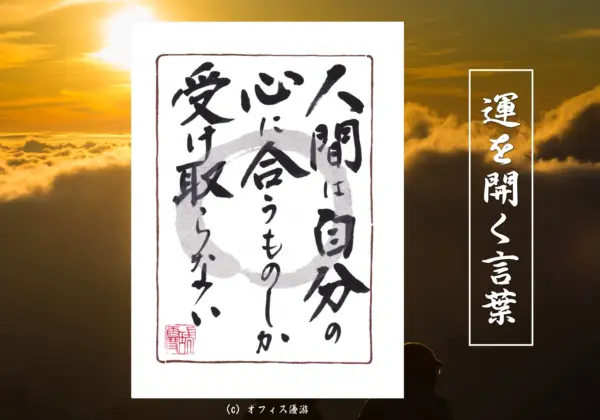 人間は自分の
心に合うものしか
受け取らない
運を開く言葉
(C) オフィス優游